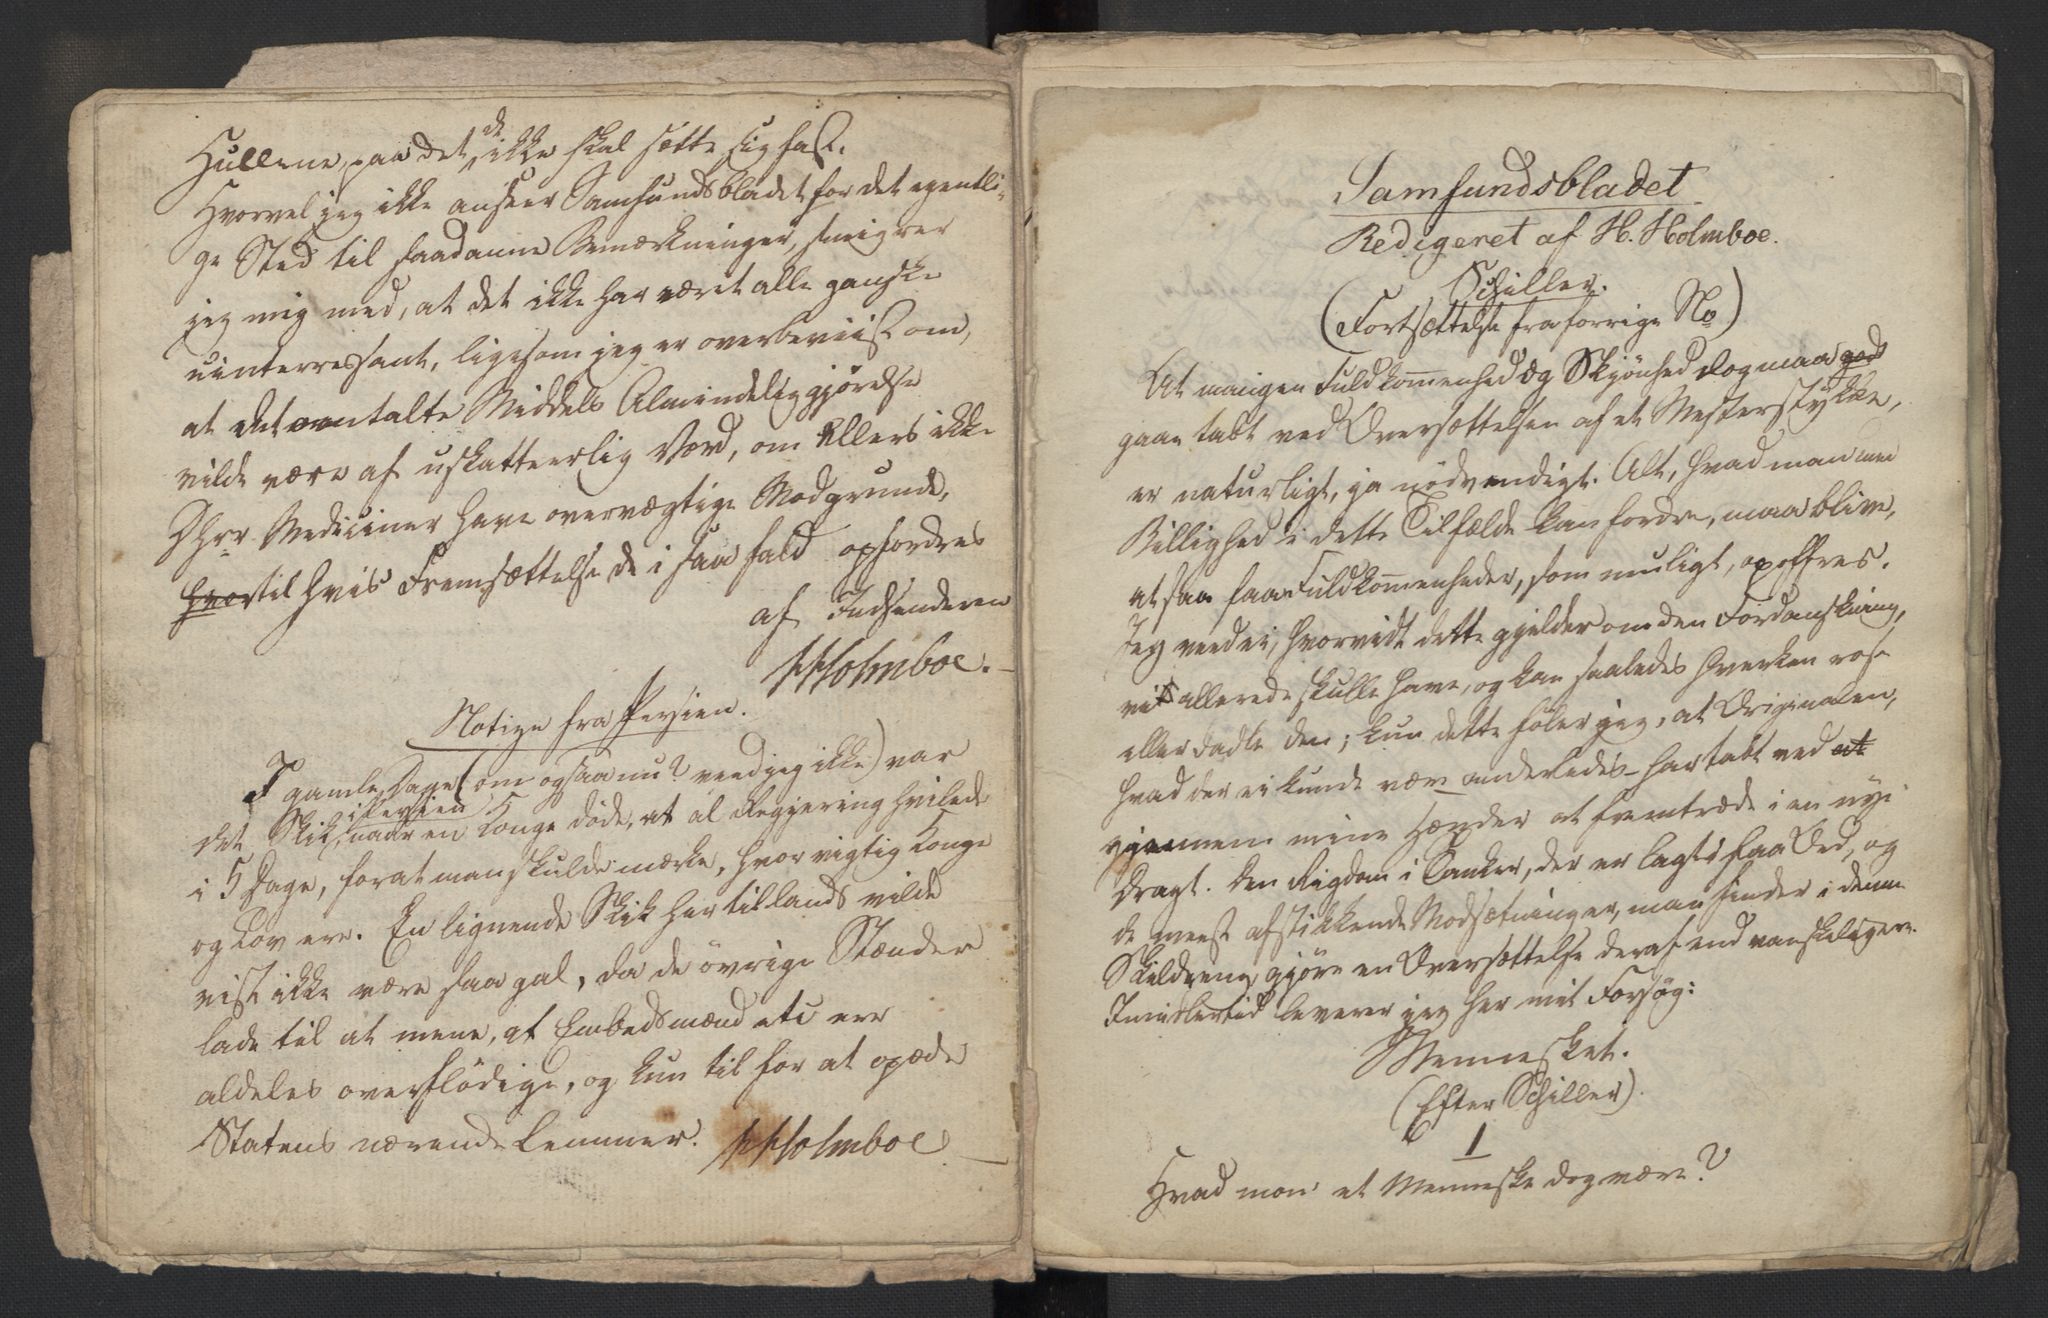 Hullene, paa det de ikke skal sætte sig fast.
Hvorvel jeg ikke anseer Samfundsbladet for det egentli-
ge Sted til saadanne Bemærkninger, smigrer
jeg mig med, at det ikke har været alle ganske
uinterressant, ligesom jeg er overbeviist om,
at det omtalte Middels Almindeliggjørelse
vilde være af uskatteerlig Værd, om Ellers ikke
DHrr Mediciner have overvægtige Modgrunde,
hvortil hvis Fremsættelse de i saa fald opfordres
af Indsenderen
HHolmboe.
Notize fra Persien.
I gamle Dage (om ogsaa nu? veed jeg ikke) var
det Skik, i Persien naar en Konge døde, at al Regjering hvilede
i 5 Dage, forat man skulde mærke, hvor vigtig Konge
og Lov ere. En lignende Skik her tillands vilde
vist ikke være saa gal, da de øvrige Stænder
lade til at mene, at Embedsmænd etc ere
aldeles overflødige, og kun til for at opæde
Statens nærende Lemmer. HHolmboe
Samfundsbladet
Redigeret af H. Holmboe.
Schiller.
(Fortsættelse fra forrige No)
At mangen Fuldkommenhed og Skjønhed dog maa
gaae tabt ved Oversættelsen af et Mesterstykke,
er naturligt, ja nödvendigt. Alt, hvad man med
Billighed i dette Tilfælde kan fordre, maa blive,
at saa faa Fuldkommenheder, som muligt, opoffres.
Jeg veed ei, hvorvidt dette gjelder om den Fordanskning,
vi allerede skulle have, og kan saaledes hverken rose
eller dadle den; kun dette føler jeg, at Originalen,
hvad der ei kunde være anderledes - har tabt ved at
gjennem mine Hænder at fremtræde i en nye
Dragt. Den Rigdom i Tanker, der er lagt i faa Ord, og
de meest afstikkende Modsætninger, man finder i denne
Skildring, gjøre en Oversættelse deraf end vanskeligere.
Imidlertid leverer jeg her mit Forsøg:
Mennesket.
(Efter Schiller).
1
Hvad mon' et Menneske dog være?